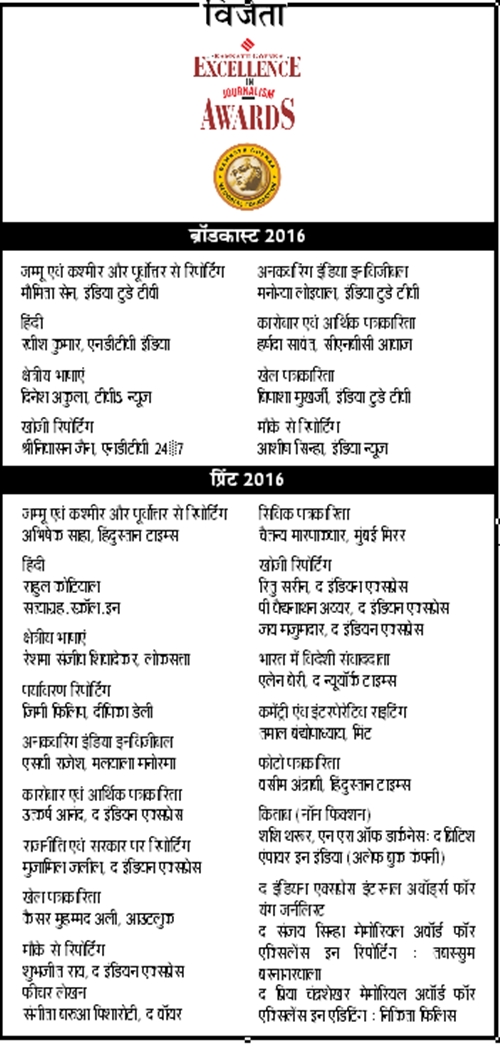 विजेता
RAMNATH GOENKA
EXCELLENCE
IN
JOURNALISM
AWARDS
RAMNATH GOENKA
MEMORIAL FOUNDATION
ब्रॉडकास्ट 2016
जम्मू एवं कश्मीर और पूर्वोत्तर से रिपोर्टिंग
मौमिता सेन, इंडिया टुडे टीवी
हिंदी
रवीश कुमार, एनडीटीवी इंडिया
क्षेत्रीय भाषाएं
दिनेश अकुला, टीवी5 न्यूज
खोजी रिपोर्टिंग
श्रीनिवासन जैन, एनडीटीवी 24 7
अनकवरिंग इंडिया इनविजीबल
मनोग्या लोइवाल, इंडिया टुडे टीवी
कारोबार एवं आर्थिक पत्रकारिता
हर्षदा सावंत, सीएनबीसी आवाज
खेल पत्रकारिता
बिपाशा मुखर्जी, इंडिया टुडे टीवी
मौके से रिपोर्टिंग
आशीष सिन्हा, इंडिया न्यूज
प्रिंट 2016
जम्मू एवं कश्मीर और पूर्वोत्तर से रिपोर्टिंग
अभिषेक साहा, हिंदुस्तान टाइम्स
हिंदी
राहुल कोटियाल
सत्याग्रह.स्क्रॉल.इन
क्षेत्रीय भाषाएं
रेशमा संजीव शिवाडेकर, लोकसत्ता
पर्यावरण रिपोर्टिंग
जिमी फिलिप, दीपिका डेली
अनकवरिंग इंडिया इनविजीबल
एसवी राजेश, मलयाला मनोरमा
कारोबार एवं आर्थिक पत्रकारिता
उत्कर्ष आनंद, द इंडियन एक्सप्रेस
राजनीति एवं सरकार पर रिपोर्टिंग
मुजामिल जलील, द इंडियन एक्सप्रेस
खेल पत्रकारिता
कैसर मुहम्मद अली, आउटलुक
मौके से रिपोर्टिंग
शुभजीत राय, द इंडियन एक्सप्रेस
फीचर लेखन
संगीता बरुआ पिशारोटी, द वॉयर
सिविक पत्रकारिता
चैतन्य मारपकवार, मुंबई मिरर
खोजी रिपोर्टिंग
रितु सरीन, द इंडियन एक्सप्रेस
पी वैद्यनाथन अय्यर, द इंडियन एक्सप्रेस
जय मजुमदार, द इंडियन एक्सप्रेस
भारत में विदेशी संवाददाता
एलेन बेरी, द न्यूयॉर्क टाइम्स
कमेंट्री एंव इंटरपेरेटिव राइटिंग
तमाल बंद्योपाध्याय, मिंट
फोटो पत्रकारिता
वसीम अंद्राबी, हिंदुस्तान टाइम्स
किताब (नॉन फिक्शन)
शशि थरूर, एन एरा ऑफ डार्कनेस: द ब्रिटिश
एंपायर इन इंडिया (अलेफ बुक कंपनी)
द इंडियन एक्सप्रेस इंटरनल अवॉर्ड्स फॉर
यंग जर्नलिस्ट
द संजय सिन्हा मेमोरियल अवॉर्ड फॉर
एक्सिलेंस इन रिपोर्टिंग : तबस्सुम
बरनागरवाला
द प्रिया चंद्रशेखर मेमोरियल अवॉर्ड फॉर
एक्सिलेंस इन एडिटिंग : निकिता फिलिस